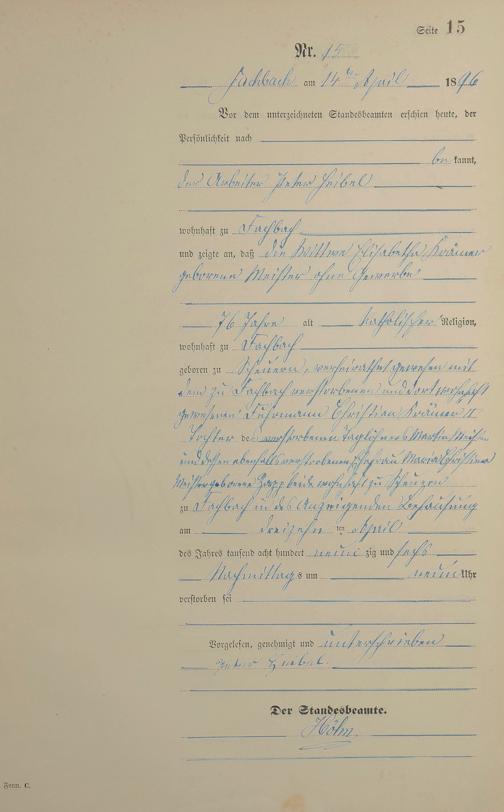 Seite 15
Nr. 15
Fachbach am 14ten April 1896
Vor dem unterzeichneten Standesbeamten erschien heute, der
Persönlichkeit nach
be kannt,
der Arbeiter Peter Heibel
wohnhaft zu Fachbach
und zeigte an, daß die Wittwe Elisabetha Krämer
geborene Meister ohne Gewerbe
76 Jahre alt Katholischer Religion,
wohnhaft zu Fachbach
geboren zu Scheuern, verheirathet gewesen mit
dem zu Fachbach verstorbenen und dort wohnhaft
gewesenen Fuhrmann Christian Krämer II
Tochter des verstorbenen Taglöhners Martin Meister
und dessen ebenfalls verstorbenen Ehefrau Maria Christina
Meister geborene beide wohnhaft zu Scheuern
zu Fachbach in des Anzeigenden Behausung
am dreizehn ten April
des Jahres tausend acht hundert neun zig und sechs
Nachmittags um neun Uhr
verstorben sei
Vorgelesen, genehmigt und unterschrieben
Peter Heibel.
Der Standesbeamte.
Höhn
Form. C.